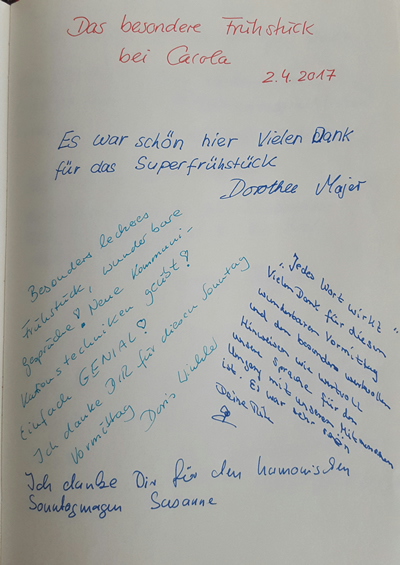 Das besondere Frühstück
bei Carola
2.4.2017
Es war schön hier Vielen Dank
für das Superfrühstück
Dorothee Majer
Besonders leckeres
Frühstück, wunderbare
Gespräche! Neue Kommuni-
kationstechniken geübt!
Einfach GENIAL!
Ich danke DIR für diesen Sonntag
Vormittag Doris
"Jedes Wort wirkt"
Vielen Dank für diesen
wunderbaren Vormittag
und den besonders wertvollen
Hinweisen wie wertvoll
unsere Sprache für den
Umgang mit unseren Mitmenschen
ist. Es war sehr schön
Deine
Ich danke Dir für den harmonischen
Sonntagmorgen Susanne